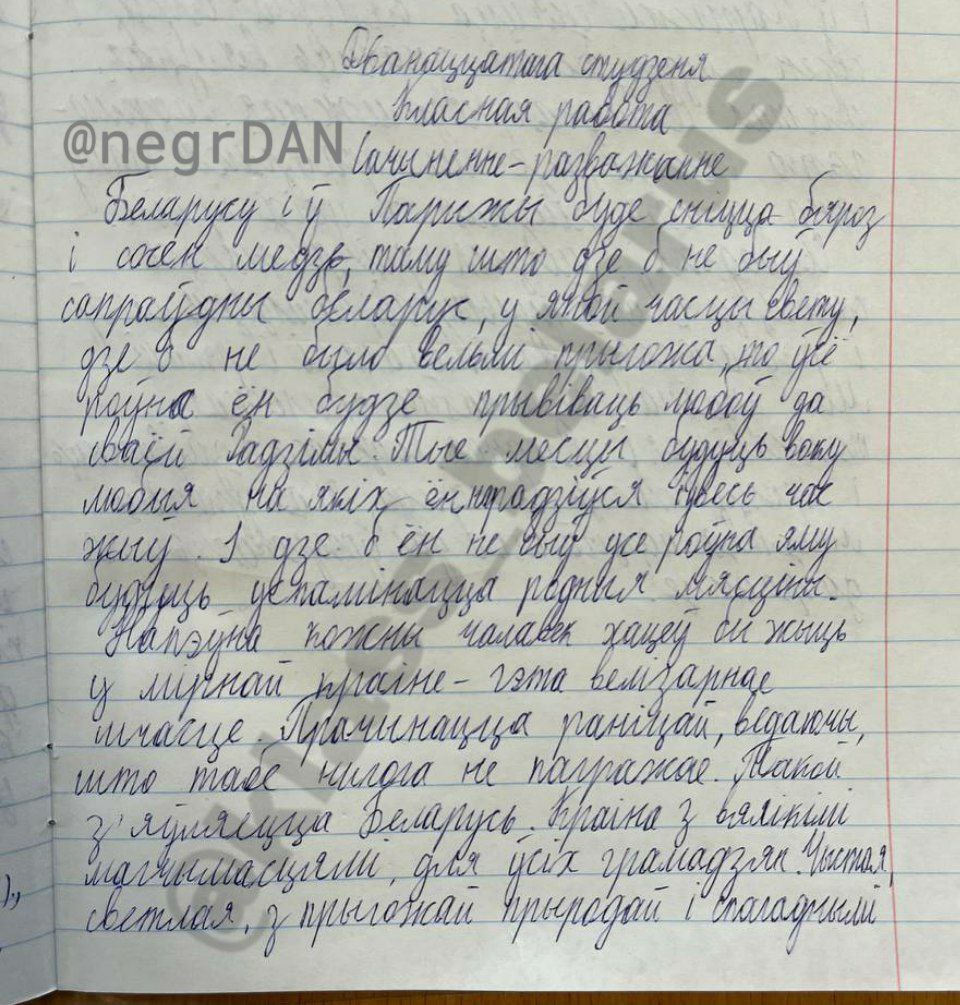 Дванаццатага студзеня
Класная работа
@negrDAN
Сачыненне-разважанне
Беларусу і ў Парыжы буде сніцца бяроз
і сосен медзь, таму што дзе б не быў
сапраўдны беларус, у якой часцы свету,
дзе б не было вельмі прыгожа, то ўсё
роўна ён будзе прывіваць любоў да
сваёй Радзімы. Тые месцы будуць воку
любыя на якіх ён нарадзіўся і увесь час
жыў. І дзе б ён не быў усе роўна яму
будуць успамінацца родныя мясціны.
Напэўна кожны чалавек хацеў бы жыць
у мірнай краіне - гэта велізарнае
шчасце. Прачынацца раніцай, ведаючы,
што табе нічога не пагражае. Такой
з'яўляецца Беларусь. Краіна з вялікімі
магчымасцямі, для ўсіх грамадзян. Чыстая,
светлая, з прыгожай прыродай і спагаднымі
),,